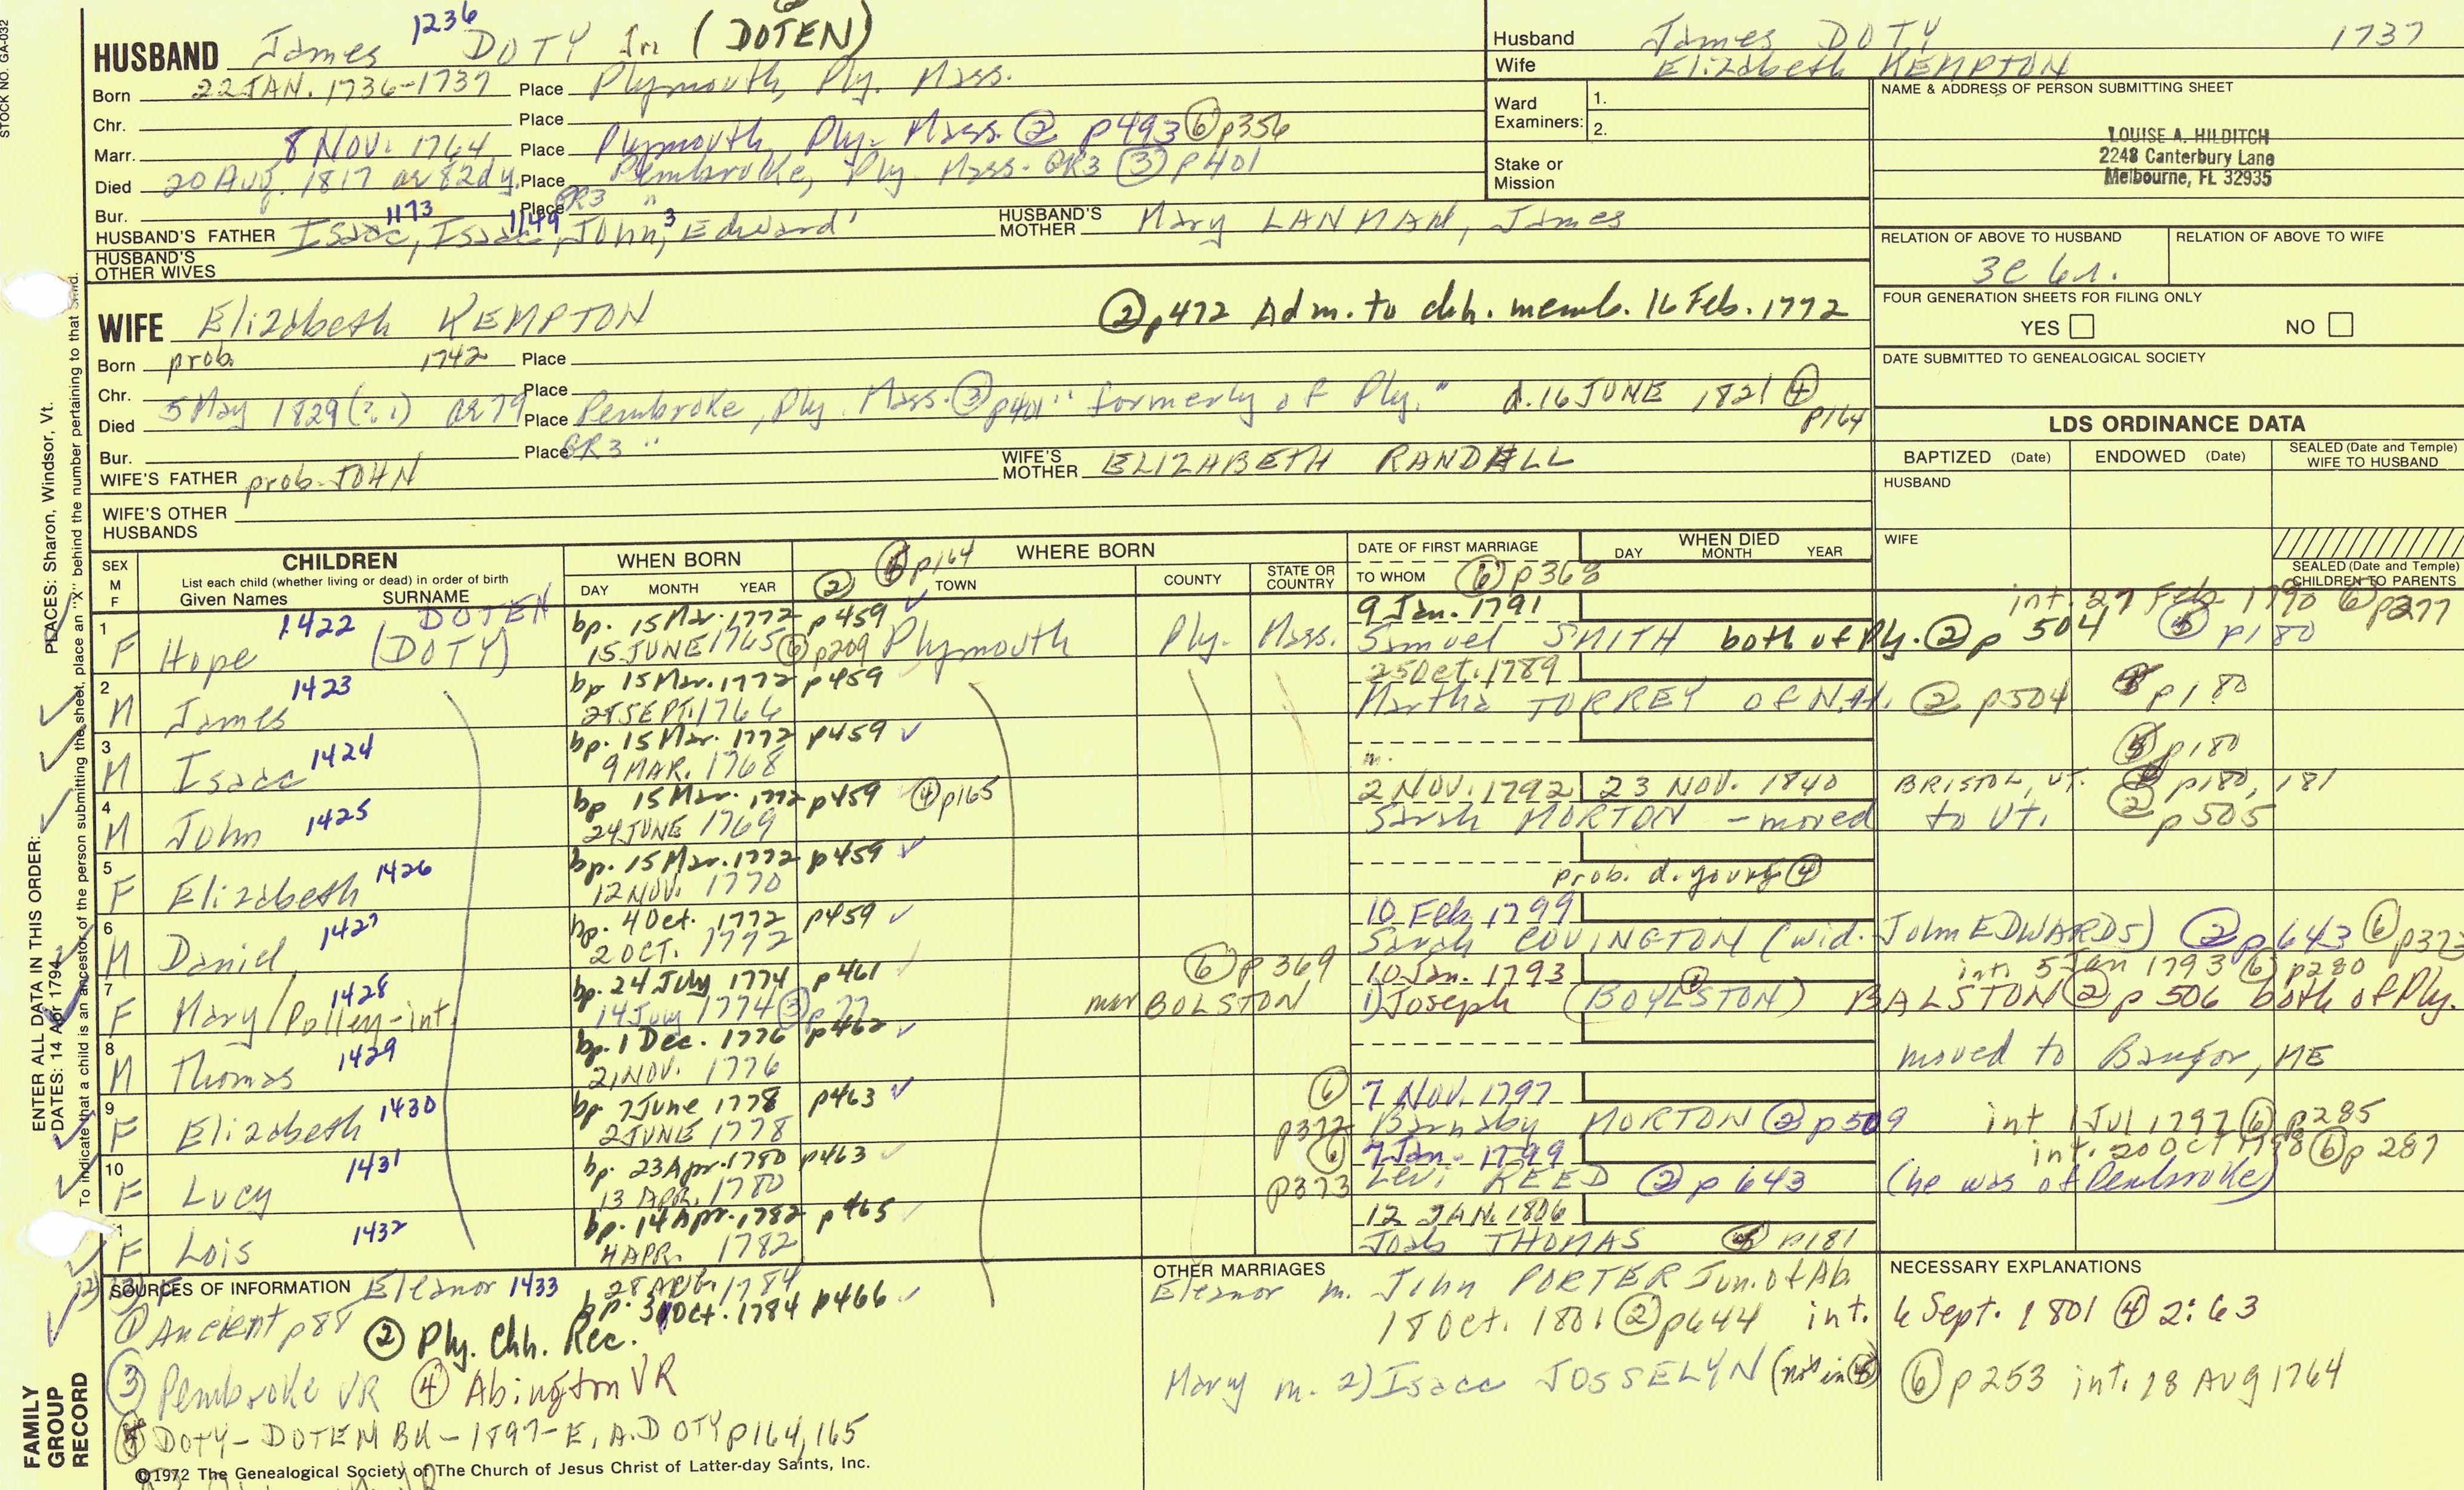 STOCK NO. GA-032
HUSBAND James 1236 DOTY Jr. (DOTEN)
Born 22 JAN. 1736-1737 Place Plymouth, Ply. Mass.
Chr. Place
Marr. 8 NOV. 1764 Place Plymouth, Ply. Mass. ② p493 ⑥ p356
Died 20 Aug. 1817 ae 82dy. Place Pembroke, Ply. Mass. GR3 ③ p401
Bur. Place GR3 "
HUSBAND'S FATHER Isaac 1173, Isaac 1149, John 3, Edward 1
HUSBAND'S MOTHER Mary LANMAN, James
HUSBAND'S OTHER WIVES
Husband James DOTY 1737
Wife Elizabeth KEMPTON
Ward Examiners: 1. 2.
Stake or Mission
NAME & ADDRESS OF PERSON SUBMITTING SHEET
LOUISE A. HILDITCH
2248 Canterbury Lane
Melbourne, FL 32935
RELATION OF ABOVE TO HUSBAND
3c 6r.
RELATION OF ABOVE TO WIFE
FOUR GENERATION SHEETS FOR FILING ONLY
YES NO
DATE SUBMITTED TO GENEALOGICAL SOCIETY
WIFE Elizabeth KEMPTON ② p472 Adm. to chh. memb. 16 Feb. 1772
Born prob. 1742 Place
Chr. Place
Died 5 May 1829 (?.) ae 79 Place Pembroke, Ply. Mass. ③ p401 "formerly of Ply." d. 16 JUNE 1821 ④ p164
Bur. Place GR3 "
WIFE'S FATHER prob. JOHN
WIFE'S MOTHER ELIZABETH RANDALL
WIFE'S OTHER HUSBANDS
LDS ORDINANCE DATA
BAPTIZED (Date) ENDOWED (Date) SEALED (Date and Temple) WIFE TO HUSBAND
HUSBAND
WIFE
SEALED (Date and Temple) CHILDREN TO PARENTS
SEX M F
CHILDREN
List each child (whether living or dead) in order of birth
Given Names SURNAME
WHEN BORN
DAY MONTH YEAR
WHERE BORN ② p164
TOWN COUNTY STATE OR COUNTRY
DATE OF FIRST MARRIAGE
TO WHOM ⑥ p368
WHEN DIED
DAY MONTH YEAR
1 F Hope 1422 DOTEN (DOTY) bp. 15 Mar. 1772 p459
15 JUNE 1765 ⑥ p209 Plymouth Ply. Mass. 9 Jan. 1791
Samuel SMITH both of Ply. ② p 504 int. 27 Feb 1790 ⑥ p277
⑤ p180
2 M James 1423 bp 15 Mar. 1772 p459
SEPT. 1766 25 Oct. 1789
Martha TORREY of N.H. ② p504 p180
3 M Isaac 1424 bp. 15 Mar. 1772 p459
9 MAR. 1768 m. ⑤ p180
4 M John 1425 bp 15 Mar. 1772 p459 ④ p165
24 JUNE 1769 2 NOV. 1792 23 NOV. 1840 BRISTOL, VT. p180, 181
Sarah MORTON - moved to VT. ② p505
5 F Elizabeth 1426 bp. 15 Mar. 1772 p459
12 NOV. 1770 prob. d. young ④
6 M Daniel 1427 bp. 4 Oct. 1772 p459
2 OCT. 1772 10 Feb. 1799
Sarah COVINGTON (wid. John EDWARDS) ② p 643 ⑥ p373
7 F Mary/Polley-int. 1428 bp. 24 July 1774 p461
14 July 1774 ③ p77 ⑥ p369 10 Jan. 1793 int. 5 Jan 1793 ⑥ p280
mar BOLSTON 1) Joseph (BOYLSTON) BALSTON ② p 506 both of Ply.
8 M Thomas 1429 bp. 1 Dec. 1776 p462
21 NOV. 1776 moved to Bangor, ME
9 F Elizabeth 1430 bp 7 June 1778 p463
2 JUNE 1778 ⑥ p372 7 NOV. 1797
Barnaby MORTON ② p509 int 1 Jul 1797 ⑥ p285
10 F Lucy 1431 bp. 23 Apr. 1780 p463
13 APR. 1780 ⑥ p373 7 Jan. 1799 int. 20 OCT 1798 ⑥ p 287
Levi REED ② p 643 (he was of Pembroke)
F Lois 1432 bp. 14 Apr. 1782 p465
4 APR. 1782 12 JAN. 1806
Joab THOMAS p181
SOURCES OF INFORMATION Eleanor 1433 28 AUG. 1784
bp. 3 Oct. 1784 p466
① Ancient p88 ② Ply. Chh. Rec.
③ Pembroke VR ④ Abington VR
⑤ DOTY-DOTEN BK-1897-E.A.DOTY p164, 165
©1972 The Genealogical Society of The Church of Jesus Christ of Latter-day Saints, Inc.
OTHER MARRIAGES
Eleanor m. John PORTER Jun. of Ab.
18 Oct. 1801 ② p644 int. 6 Sept. 1801 ④ 2:63
Mary m. 2) Isaac JOSSELYN (not in ⑤)
NECESSARY EXPLANATIONS
⑥ p253 int. 18 Aug 1764
ENTER ALL DATA IN THIS ORDER:
PLACES: Sharon, Windsor, Vt.
DATES: 14 Apr 1794
To indicate that a child is an ancestor of the person submitting the sheet, place an "X" behind the number pertaining to that child.
FAMILY GROUP RECORD